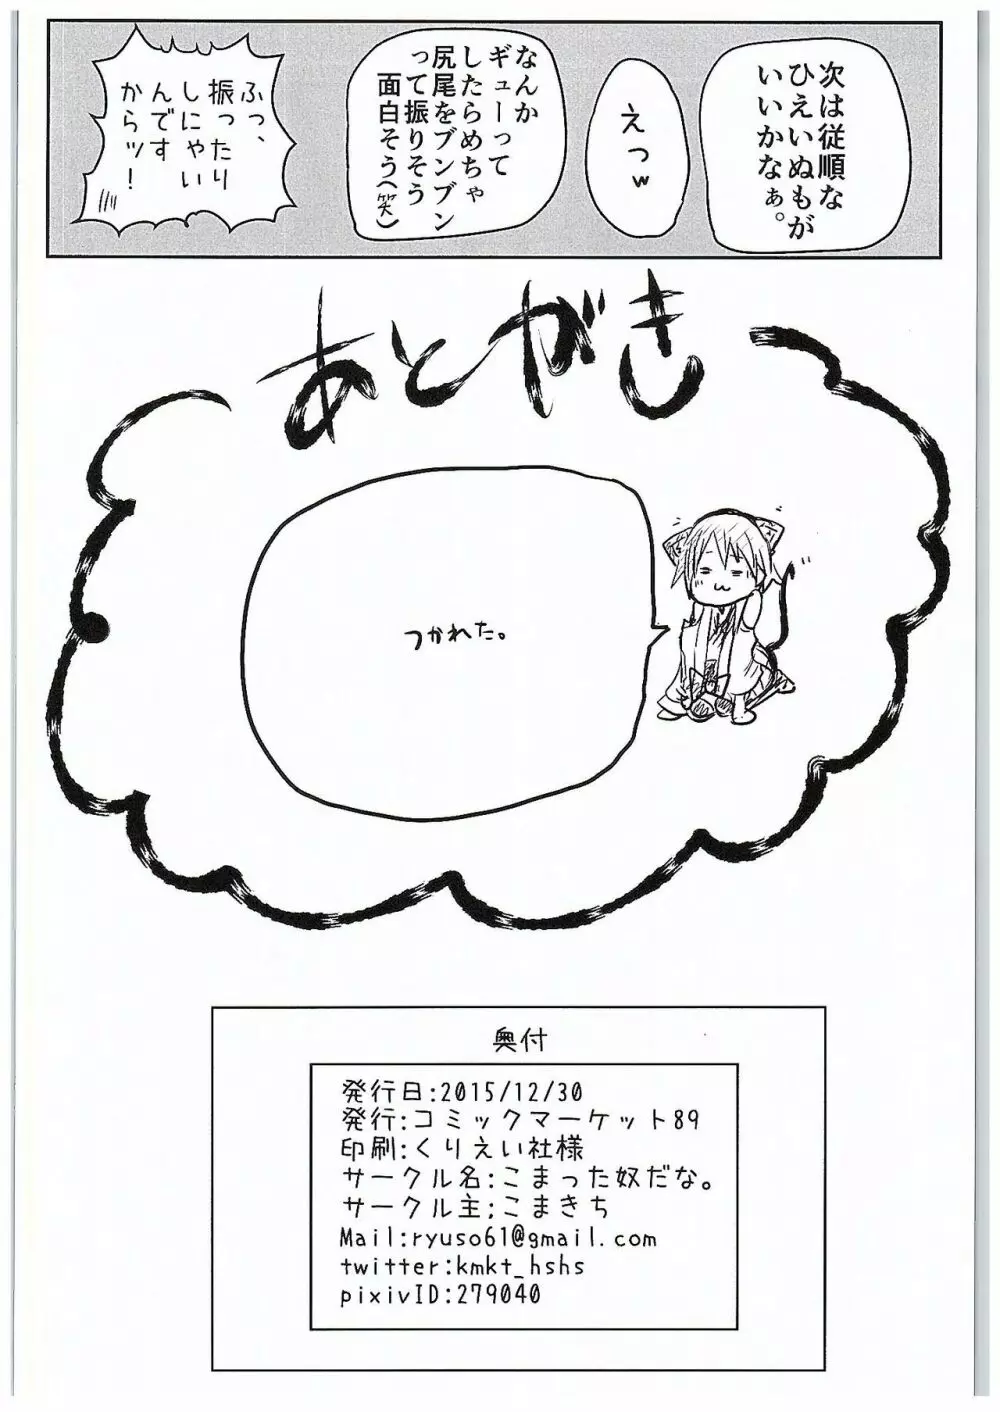 次は従順な
ひえいぬもが
いいかなぁ。
えっw
なんか
ギューって
したらめちゃ
尻尾をブンブン
って振りそう
面白そう(笑)
ふっ、
振ったり
しにゃい
んです
からッ!
あとがき
つかれた。
奥付
発行日:2015/12/30
発行:コミックマーケット89
印刷:くりえい社様
サークル名:こまった奴だな。
サークル主:こまきち
Mail:ryuso61@gmail.com
twitter:kmkt_hshs
pixivID:279040